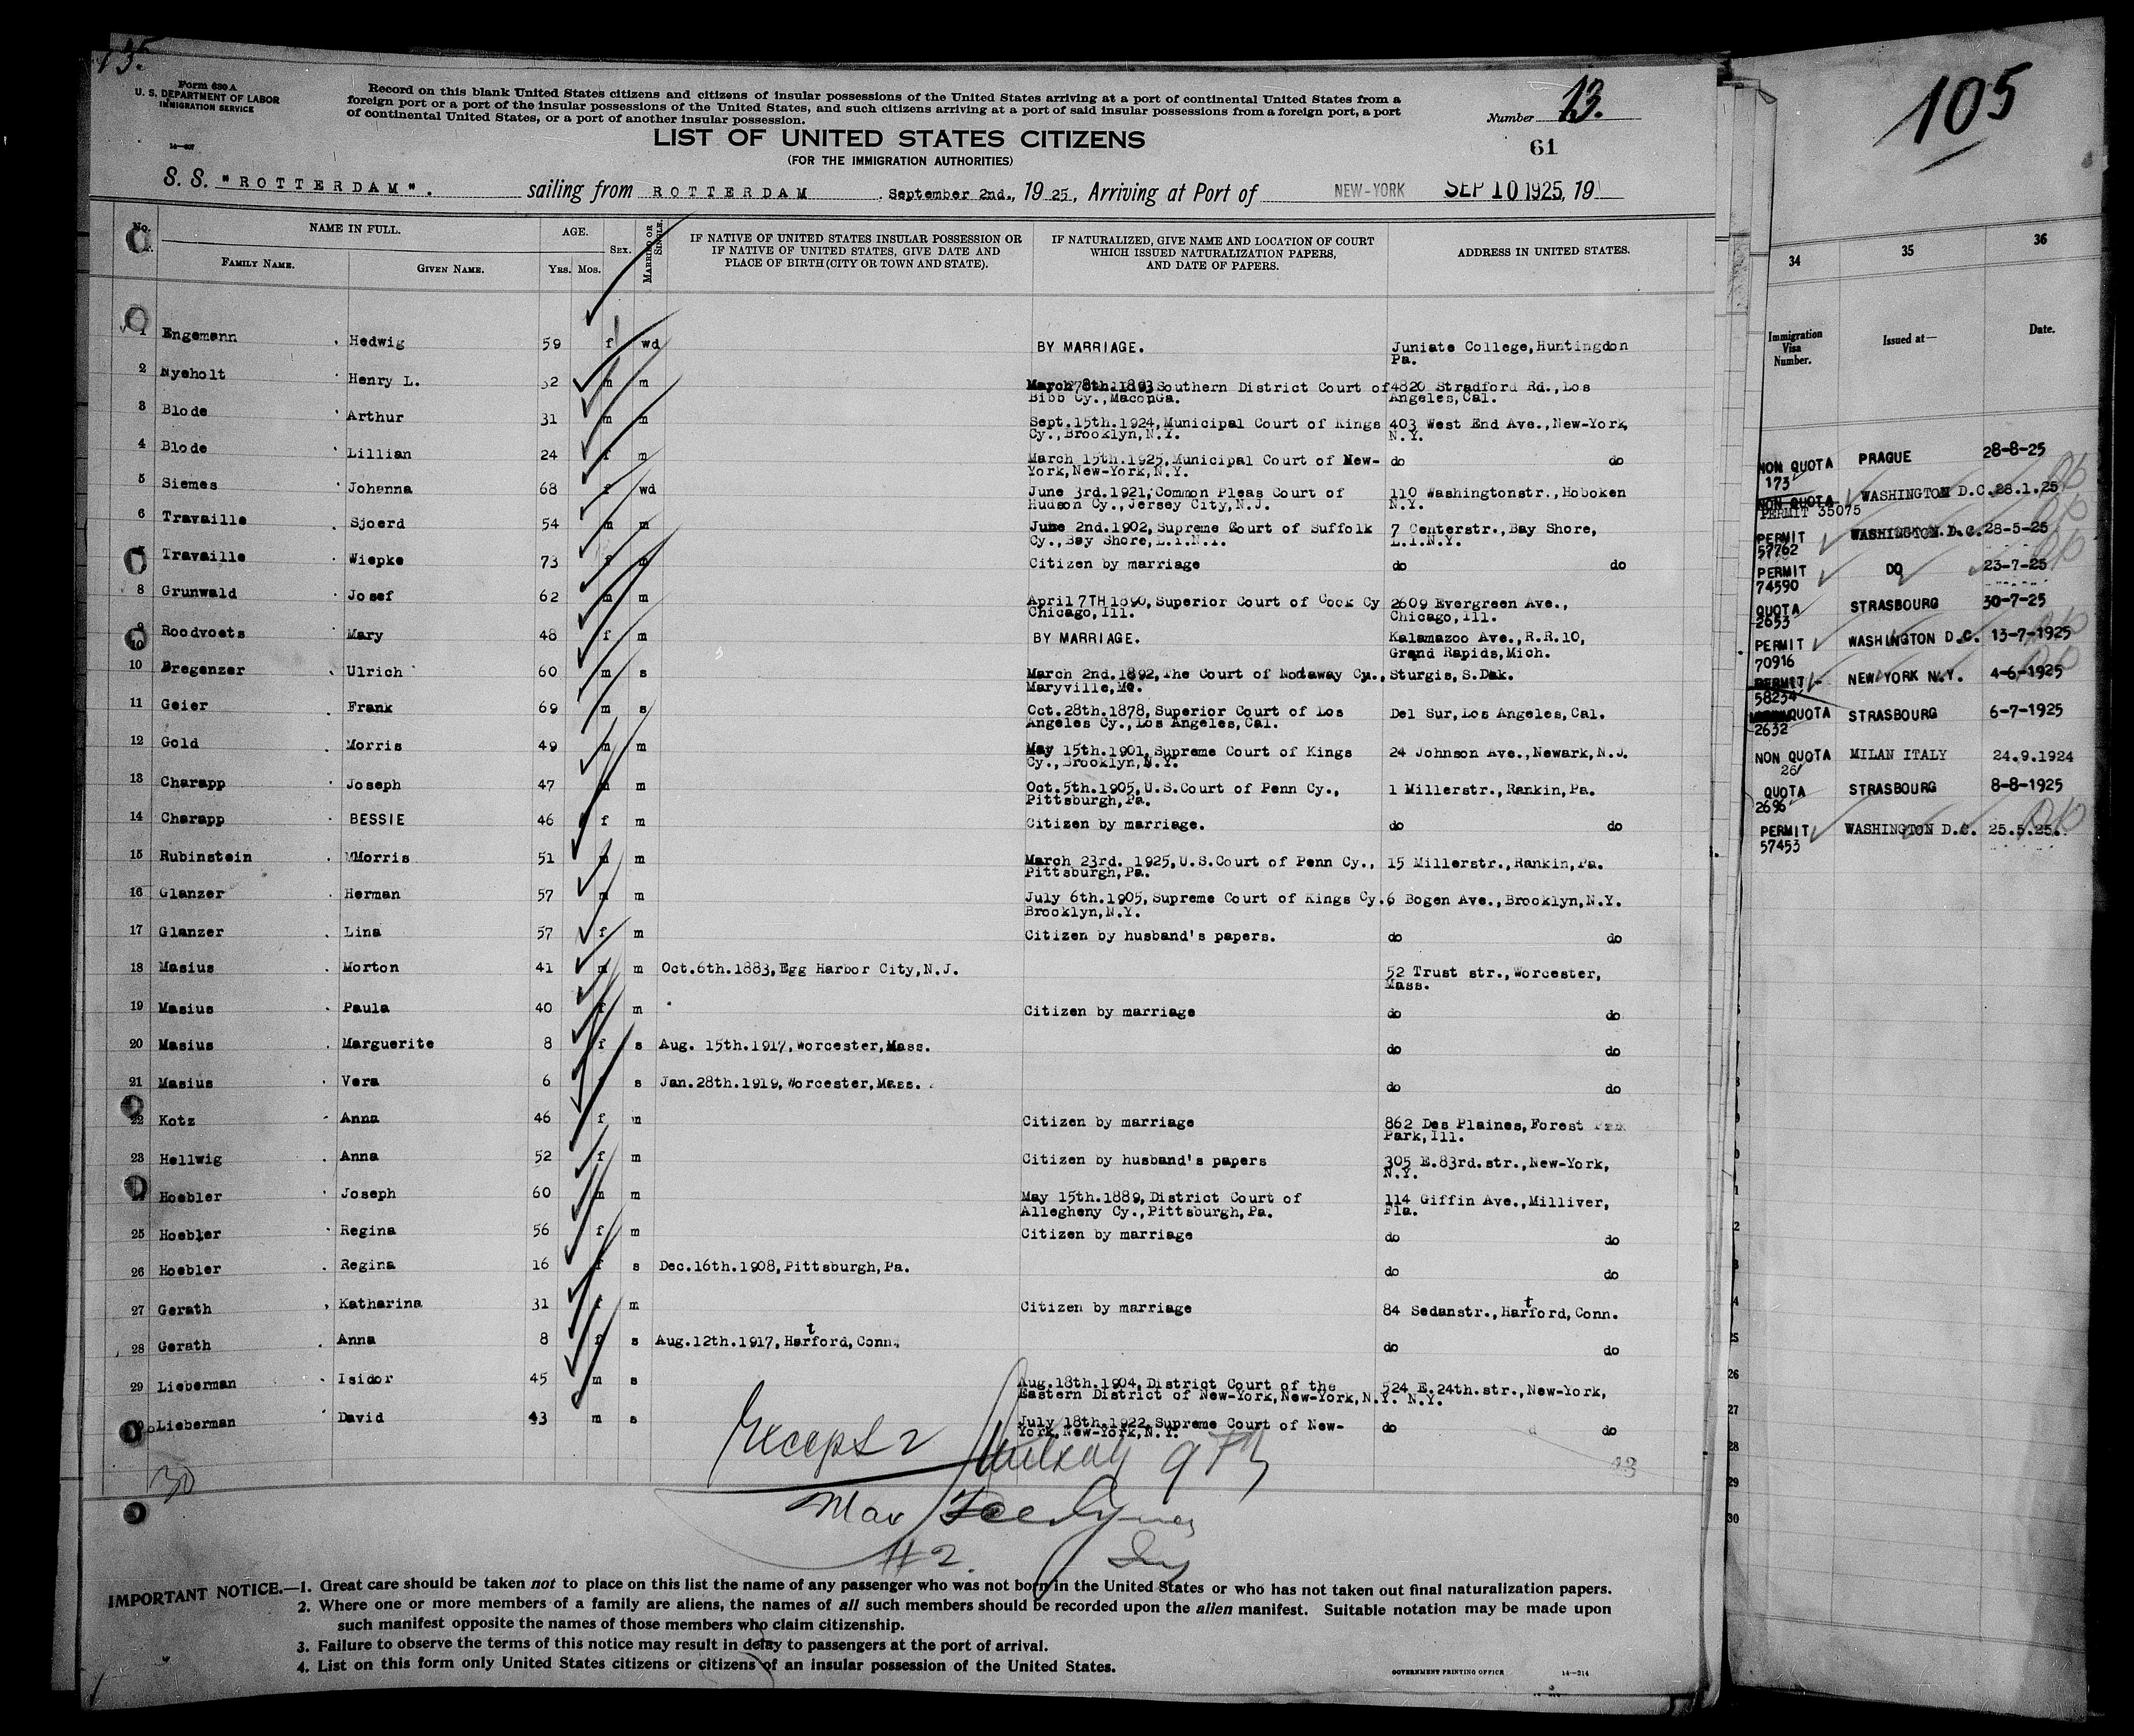 13.
Form 630 A
U. S. DEPARTMENT OF LABOR
IMMIGRATION SERVICE
Record on this blank United States citizens and citizens of insular possessions of the United States arriving at a port of continental United States from a
foreign port or a port of the insular possessions of the United States, and such citizens arriving at a port of said insular possessions from a foreign port, a port
of continental United States, or a port of another insular possession.
Number 13.
LIST OF UNITED STATES CITIZENS
61
(FOR THE IMMIGRATION AUTHORITIES)
S. S. "ROTTERDAM". sailing from ROTTERDAM . September 2nd., 19 25, Arriving at Port of NEW-YORK SEP 10 1925, 19
No. NAME IN FULL. AGE. Sex. MARRIED OR SINGLE.
FAMILY NAME. GIVEN NAME. YRS. MOS.
IF NATIVE OF UNITED STATES INSULAR POSSESSION OR
IF NATIVE OF UNITED STATES, GIVE DATE AND
PLACE OF BIRTH (CITY OR TOWN AND STATE).
IF NATURALIZED, GIVE NAME AND LOCATION OF COURT
WHICH ISSUED NATURALIZATION PAPERS,
AND DATE OF PAPERS.
ADDRESS IN UNITED STATES.
1 Engemann Hedwig 59 f wd BY MARRIAGE. Juniate College, Huntingdon
Pa.
2 Nyeholt Henry L. 52 m m 1893 Southern District Court of 4820 Stradford Rd., Los
Bibb Cy., Macon Ga. Angeles, Cal.
3 Blode Arthur 31 m m Sept. 15th. 1924, Municipal Court of Kings 403 West End Ave., New-York,
Cy., Brooklyn, N.Y. N.Y.
4 Blode Lillian 24 f m March 15th. 1925, Municipal Court of New- do do
York, New-York, N.Y.
5 Siemes Johanna 68 f wd June 3rd. 1921, Common Pleas Court of 110 Washingtonstr., Hoboken
Hudson Cy., Jersey City, N.J. N.Y.
6 Travaille Sjoerd 54 m m June 2nd. 1902, Supreme Court of Suffolk 7 Centerstr., Bay Shore,
Cy., Bay Shore, L.I.N.Y. L.I.N.Y.
7 Travaille Wiepke 73 f m Citizen by marriage do do
8 Grunwald Josef 62 m m April 7TH 1890, Superior Court of Cook Cy 2609 Evergreen Ave.,
Chicago, Ill. Chicago, Ill.
9 Roodvoets Mary 48 f m BY MARRIAGE. Kalamazoo Ave., R.R.10,
10 Grand Rapids, Mich.
10 Bregenzer Ulrich 60 m s March 2nd. 1892, The Court of Nodaway Cy., Sturgis, S.Dak.
Maryville, Mo.
11 Geier Frank 69 m s Oct. 28th. 1878, Superior Court of Los Del Sur, Los Angeles, Cal.
Angeles Cy., Los Angeles, Cal.
12 Gold Morris 49 m m May 15th. 1901, Supreme Court of Kings 24 Johnson Ave., Newark, N.J.
Cy., Brooklyn, N.Y.
13 Charapp Joseph 47 m m Oct. 5th. 1905, U.S. Court of Penn Cy., 1 Millerstr., Rankin, Pa.
Pittsburgh, Pa.
14 Charapp BESSIE 46 f m Citizen by marriage. do do
15 Rubinstein MMorris 51 m m March 23rd. 1925, U.S. Court of Penn Cy., 15 Millerstr., Rankin, Pa.
Pittsburgh, Pa.
16 Glanzer Herman 57 m m July 6th. 1905, Supreme Court of Kings Cy. 6 Bogen Ave., Brooklyn, N.Y.
Brooklyn, N.Y.
17 Glanzer Lina 57 f m Citizen by husband's papers. do do
18 Masius Morton 41 m m Oct. 6th. 1883, Egg Harbor City, N.J. 52 Trust str., Worcester,
Mass.
19 Masius Paula 40 f m Citizen by marriage do do
20 Masius Marguerite 8 f s Aug. 15th. 1917, Worcester, Mass. do do
21 Masius Vera 6 s Jan. 28th. 1919, Worcester, Mass. do do
22 Kotz Anna 46 f m Citizen by marriage 862 Des Plaines, Forest
Park, Ill.
23 Hellwig Anna 52 f m Citizen by husband's papers 305 E. 83rd. str., New-York,
N.Y.
Hoebler Joseph 60 m m May 15th. 1889, District Court of 114 Giffin Ave., Milliver,
Allegheny Cy., Pittsburgh, Pa. Fla.
25 Hoebler Regina 56 f m Citizen by marriage do do
26 Hoebler Regina 16 f s Dec. 16th. 1908, Pittsburgh, Pa. do do
27 Gerath Katharina 31 f m Citizen by marriage 84 Sedanstr., Hartford, Conn.
28 Gerath Anna 8 f s Aug. 12th. 1917, Hartford, Conn. do do
29 Lieberman Isidor 45 m s Aug. 18th. 1904, District Court of the 524 E. 24th. str., New-York,
Eastern District of New-York, New-York, N.Y. N.Y.
Lieberman David 43 m s July 18th. 1922, Supreme Court of New- do do
York, New-York, N.Y.
30
Except 2
Max
#2.
IMPORTANT NOTICE.—1. Great care should be taken not to place on this list the name of any passenger who was not born in the United States or who has not taken out final naturalization papers.
2. Where one or more members of a family are aliens, the names of all such members should be recorded upon the alien manifest. Suitable notation may be made upon
such manifest opposite the names of those members who claim citizenship.
3. Failure to observe the terms of this notice may result in delay to passengers at the port of arrival.
4. List on this form only United States citizens or citizens of an insular possession of the United States.
GOVERNMENT PRINTING OFFICE 14—214
105
34 35 36
Immigration
Visa
Number.
Issued at—
Date.
NON QUOTA PRAGUE 28-8-25
173
NON QUOTA WASHINGTON D.C. 28.1.25
PERMIT 35075
PERMIT WASHINGTON.D.C. 28-5-25
57762
PERMIT DO 23-7-25
74590
QUOTA STRASBOURG 30-7-25
2653
PERMIT WASHINGTON D.C. 13-7-1925
70916
PERMIT NEW YORK N.Y. 4-6-1925
58234
QUOTA STRASBOURG 6-7-1925
2632
NON QUOTA MILAN ITALY 24.9.1924
26
QUOTA STRASBOURG 8-8-1925
2696
PERMIT WASHINGTON D.C. 25.5.25.
57453
25
26
27
28
29
30